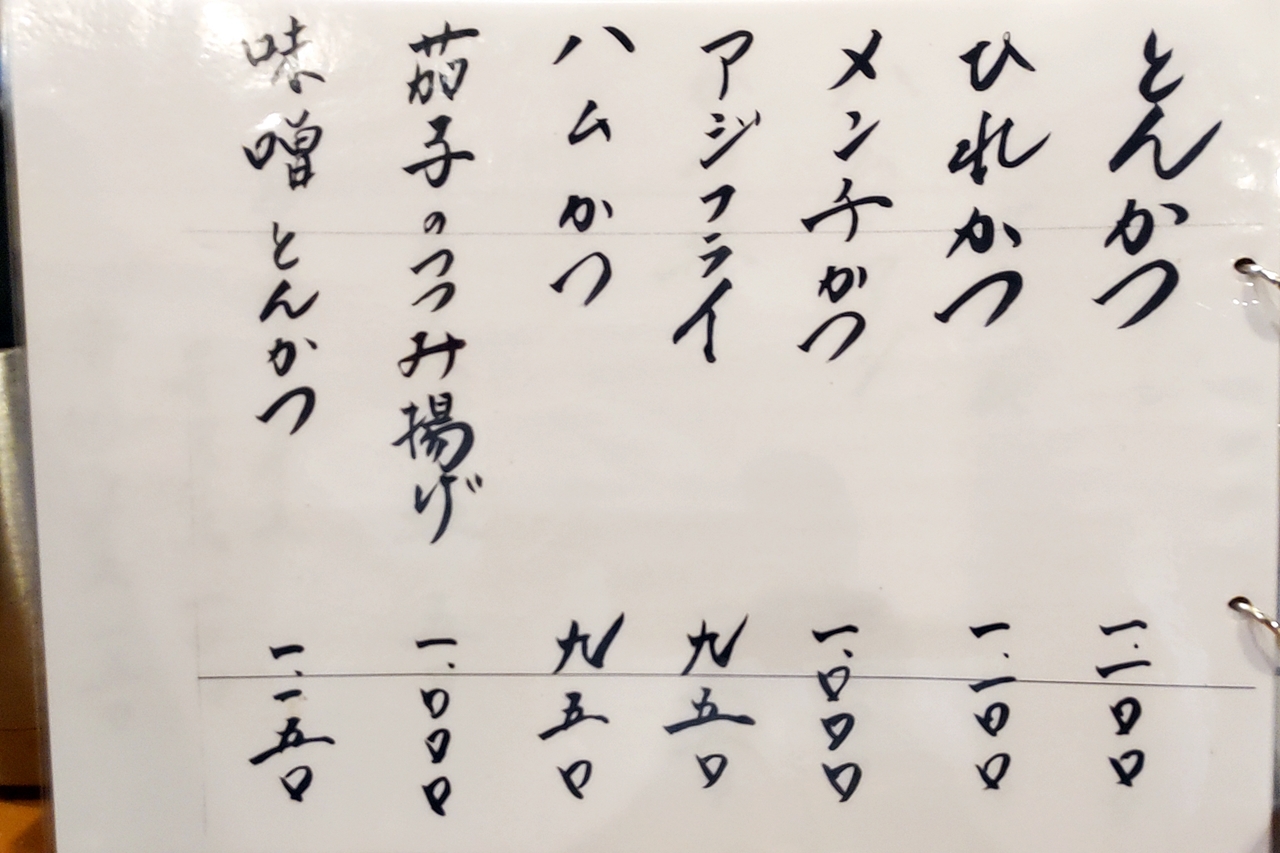 とんかつ 一.一〇〇
ひれかつ 一.一〇〇
メンチかつ 一.〇〇〇
アジフライ 九五〇
ハムかつ 九五〇
茄子のつつみ揚げ 一.〇〇〇
味噌とんかつ 一.一五〇